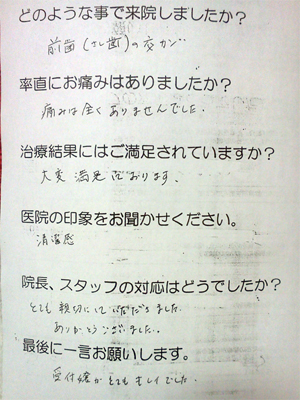 どのような事で来院しましたか？
前歯（さし歯）の交カン
率直にお痛みはありましたか？
痛みは全くありませんでした．
治療結果にはご満足されていますか？
大変 満足 しております．
医院の印象をお聞かせください。
清潔感
院長、スタッフの対応はどうでしたか？
とても 親切にして いただきました
ありがとうございました．
最後に一言お願いします。
受付嬢がとてもキレイでした．